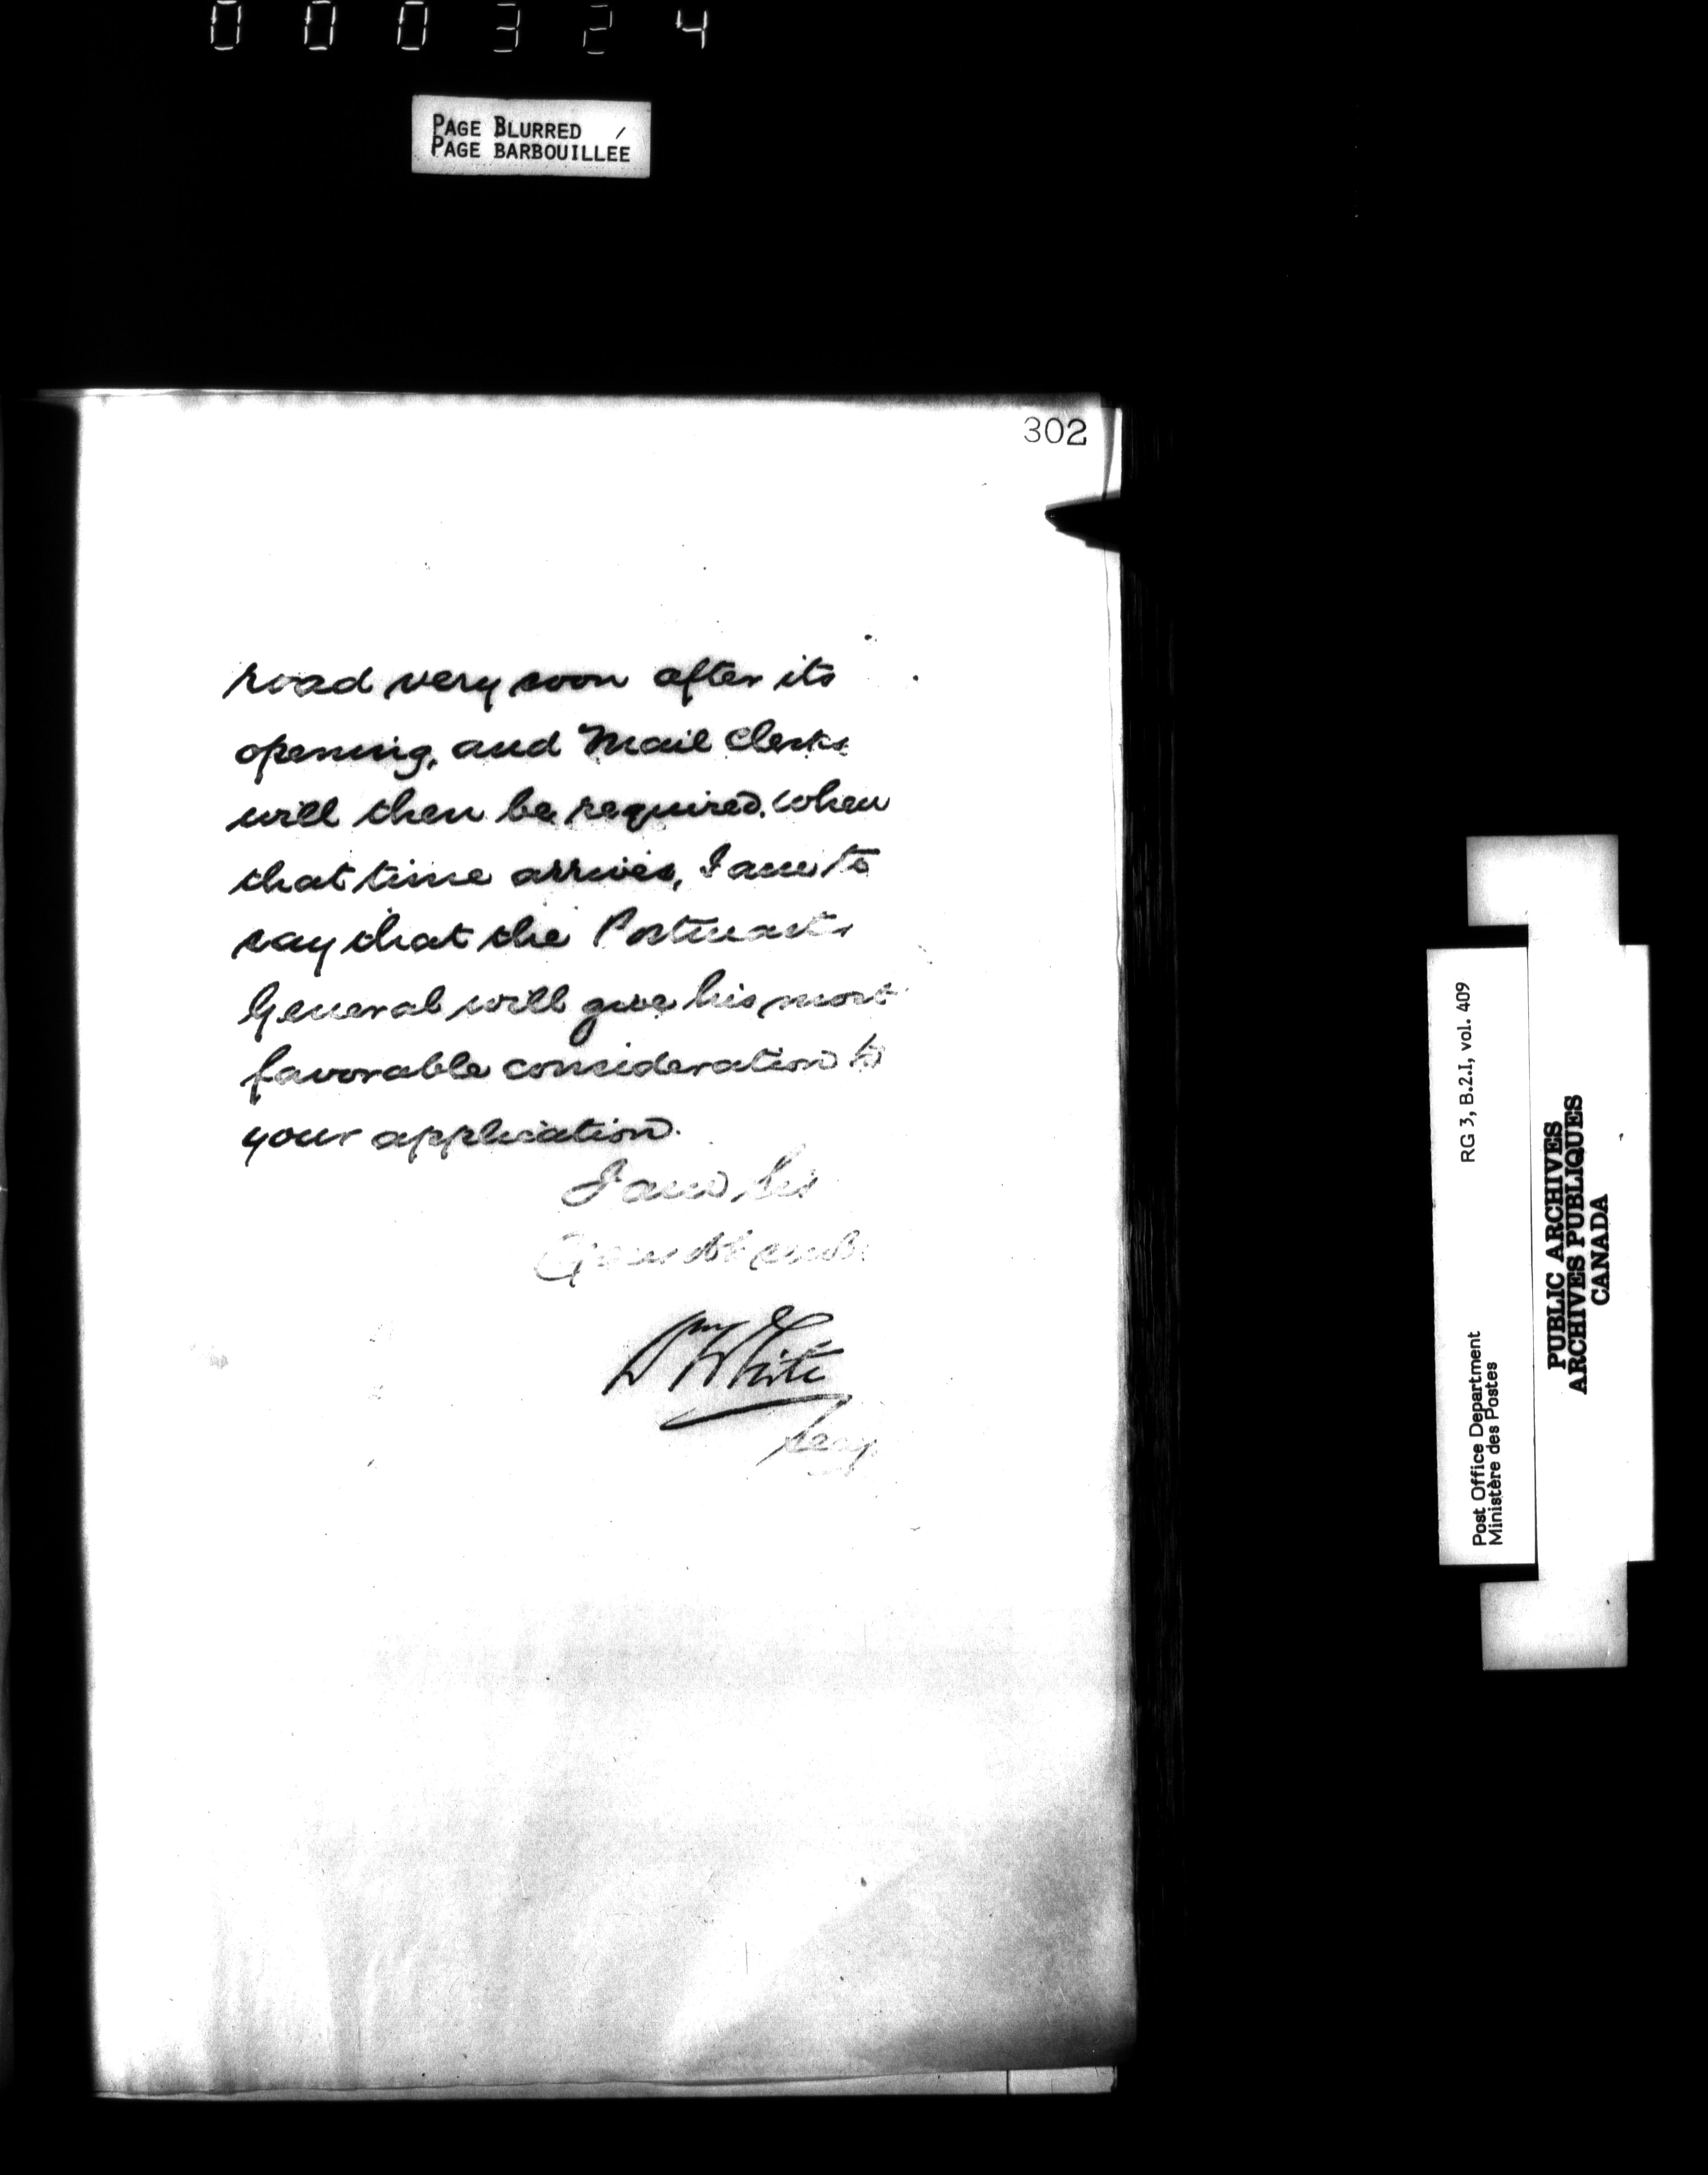 000324
PAGE BLURRED
PAGE BARBOUILLÉE
302
road very soon after its
opening, and Mail Clerks
will then be required. When
that time arrives, I am to
say that the Postmaster
General will give his most
favorable consideration to
your application.
I am, Sir
Your Obt
Wm White
Secy
RG 3, B.2.I, vol. 409
Post Office Department
Ministère des Postes
PUBLIC ARCHIVES
ARCHIVES PUBLIQUES
CANADA